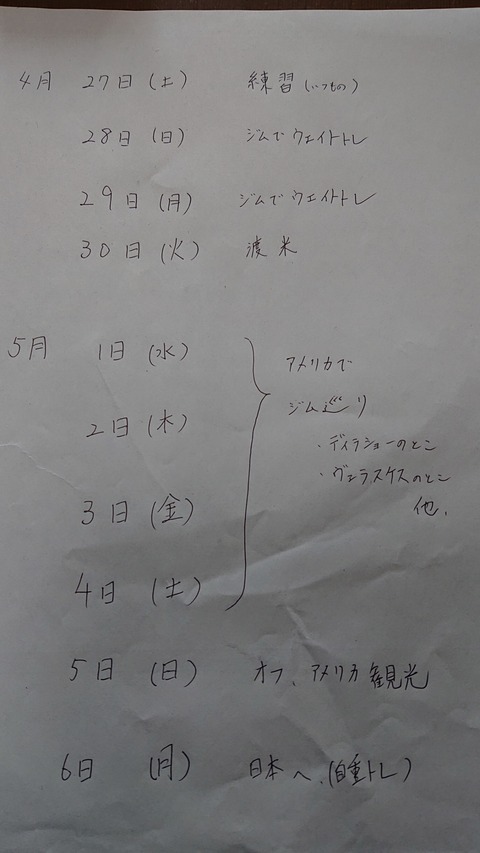 4月 27日(土) 練習(いつもの)
28日(日) ジムでウェイトトレ
29日(月) ジムでウエイトトレ
30日(火) 渡米
5月 1日(水)
2日(木)
3日(金)
4日(土)
アメリカで
ジム巡り
・ディラショーのとこ
・ヴェラスケスのとこ
他.
5日(日) オフ、アメリカ観光
6日(月) 日本へ、(自重トレ)